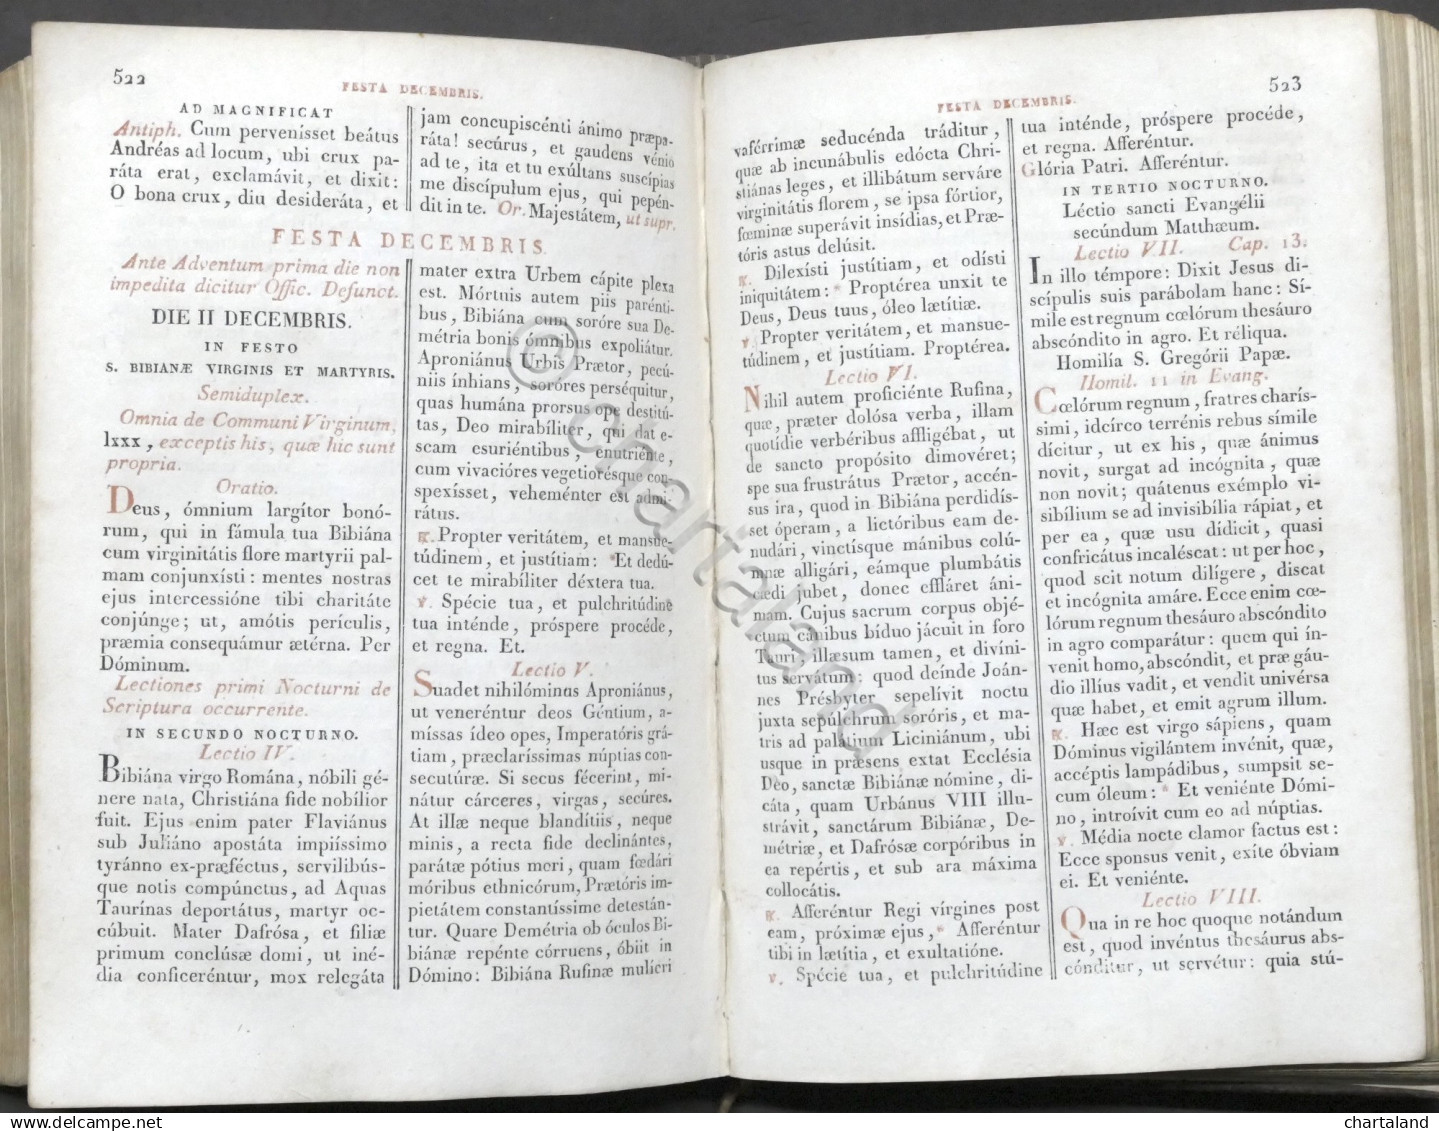 522
FESTA DECEMBRIS.
AD MAGNIFICAT
Antiph. Cum pervenísset beátus
Andréas ad locum, ubi crux pa-
ráta erat, exclamávit, et dixit:
O bona crux, diu desideráta, et
jam concupiscénti ánimo præpa-
ráta! secúrus, et gaudens vénio
ad te, ita et tu exúltans suscípias
me discípulum ejus, qui pepén-
dit in te. Or. Majestátem, ut supr.
FESTA DECEMBRIS.
Ante Adventum prima die non
impedita dicitur Offic. Defunct.
DIE II DECEMBRIS.
IN FESTO
S. BIBIANÆ VIRGINIS ET MARTYRIS.
Semiduplex.
Omnia de Communi Virginum,
lxxx, exceptis his, quæ hic sunt
propria.
Oratio.
Deus, ómnium largítor bonó-
rum, qui in fámula tua Bibiána
cum virginitátis flore martyrii pal-
mam conjunxísti: mentes nostras
ejus intercessióne tibi charitáte
conjúnge; ut, amótis perículis,
præmia consequámur ætérna. Per
Dóminum.
Lectiones primi Nocturni de
Scriptura occurrente.
IN SECUNDO NOCTURNO.
Lectio IV.
Bibiána virgo Romána, nóbili gé-
nere nata, Christiána fide nobílior
fuit. Ejus enim pater Flaviánus
sub Juliáno apostáta impiíssimo
tyránno ex-præféctus, servilibús-
que notis compúnctus, ad Aquas
Taurínas deportátus, martyr oc-
cúbuit. Mater Dafrósa, et fíliæ
primum conclúsæ domi, ut iné-
dia conficeréntur, mox relegáta
mater extra Urbem cápite plexa
est. Mórtuis autem piis parénti-
bus, Bibiána cum soróre sua De-
métria bonis ómnibus expoliátur.
Aproniánus Urbis Prætor, pecú-
niis ínhians, soróres perséquitur,
quas humána prorsus ope destitú-
tas, Deo mirabíliter, qui dat e-
scam esuriéntibus, enutriénte,
cum vivacióres vegetiorésque con-
spexísset, veheménter est admi-
rátus.
℟. Propter veritátem, et mansue-
túdinem, et justítiam: * Et dedú-
cet te mirabíliter déxtera tua.
℣. Spécie tua, et pulchritúdine
tua inténde, próspere procéde,
et regna. Et.
Lectio V.
Suadet nihilóminus Aproniánus,
ut veneréntur deos Géntium, a-
míssas ídeo opes, Imperatóris grá-
tiam, præclaríssimas núptias con-
secutúræ. Si secus fécerint, mi-
nátur cárceres, virgas, secúres.
At illæ neque blandítiis, neque
minis, a recta fide declinántes,
parátæ pótius mori, quam fœdári
móribus ethnicórum, Prætóris im-
pietátem constantíssime detestán-
tur. Quare Demétria ob óculos Bi-
biánæ repénte córruens, óbiit in
Dómino: Bibiána Rufínæ mulíeri
523
FESTA DECEMBRIS.
vaférrimæ seducénda tráditur,
quæ ab incunábulis edócta Chri-
stiánas leges, et illibátum serváre
virginitátis florem, se ipsa fórtior,
fœminæ superávit insídias, et Præ-
tóris astus delúsit.
℟. Dilexísti justítiam, et odísti
iniquitátem: * Proptérea unxit te
Deus, Deus tuus, óleo lætítiæ.
℣. Propter veritátem, et mansue-
túdinem, et justítiam. Proptérea.
Lectio VI.
Nihil autem proficiénte Rufina,
quæ, præter dolósa verba, illam
quotídie verbéribus affligébat, ut
de sancto propósito dimovéret;
spe sua frustrátus Prætor, accén-
sus ira, quod in Bibiána perdidís-
set óperam, a lictóribus eam de-
nudári, vinctísque mánibus colú-
mnæ alligári, eámque plumbátis
cædi jubet, donec effláret áni-
mam. Cujus sacrum corpus objé-
ctum cánibus bíduo jácuit in foro
Tauri illæsum tamen, et diviní-
tus servátum: quod deínde Joán-
nes Présbyter sepelívit noctu
juxta sepúlchrum soróris, et ma-
tris ad palátium Liciniánum, ubi
usque in præsens extat Ecclésia
Deo, sanctæ Bibiánæ nómine, di-
cáta, quam Urbánus VIII illu-
strávit, sanctárum Bibiánæ, De-
métriæ, et Dafrósæ corpóribus in
ea repértis, et sub ara máxima
collocátis.
℟. Afferéntur Regi vírgines post
eam, próximæ ejus, * Afferéntur
tibi in lætítia, et exultatióne.
℣. Spécie tua, et pulchritúdine
tua inténde, próspere procéde,
et regna. Afferéntur.
Glória Patri. Afferéntur.
IN TERTIO NOCTURNO.
Léctio sancti Evangélii
secúndum Matthæum.
Lectio VII. Cap. 13.
In illo témpore: Dixit Jesus di-
scípulis suis parábolam hanc: Sí-
mile est regnum cœlórum thesáuro
abscóndito in agro. Et réliqua.
Homilía S. Gregórii Papæ.
Homil. 11 in Evang.
Cœlórum regnum, fratres charís-
simi, idcírco terrénis rebus símile
dícitur, ut ex his, quæ ánimus
novit, surgat ad incógnita, quæ
non novit; quátenus exémplo vi-
sibílium se ad invisibília rápiat, et
per ea, quæ usu dídicit, quasi
confricátus incaléscat: ut per hoc,
quod scit notum dilígere, discat
et incógnita amáre. Ecce enim cœ-
lórum regnum thesáuro abscóndito
in agro comparátur: quem qui ín-
venit homo, abscóndit, et præ gáu-
dio illíus vadit, et vendit univérsa
quæ habet, et emit agrum illum.
℟. Hæc est virgo sápiens, quam
Dóminus vigilántem invénit, quæ,
accéptis lampádibus, sumpsit se-
cum óleum: * Et veniénte Dómi-
no, introívit cum eo ad núptias.
℣. Média nocte clamor factus est:
Ecce sponsus venit, exíte óbviam
ei. Et veniénte.
Lectio VIII.
Qua in re hoc quoque notándum
est, quod invéntus thesáurus abs-
cónditur, ut servétur: quia stú-
© chartaland
the best online collectibles marketplace
delcampe.net
chartaland